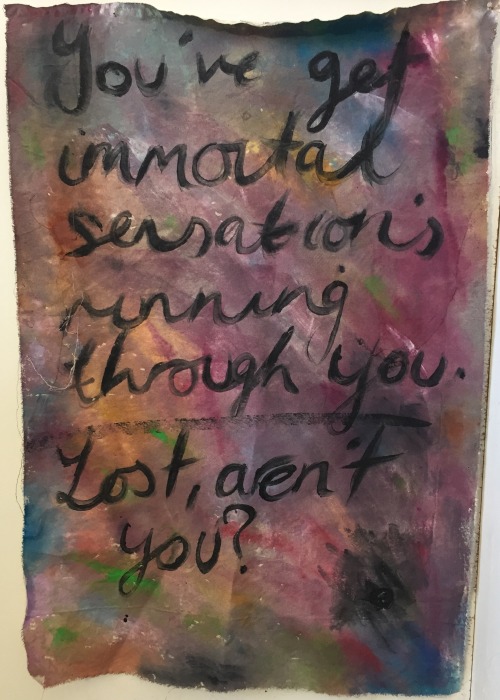 You've get
immortal
sensation's
running
through you.
Lost, aren't
you?